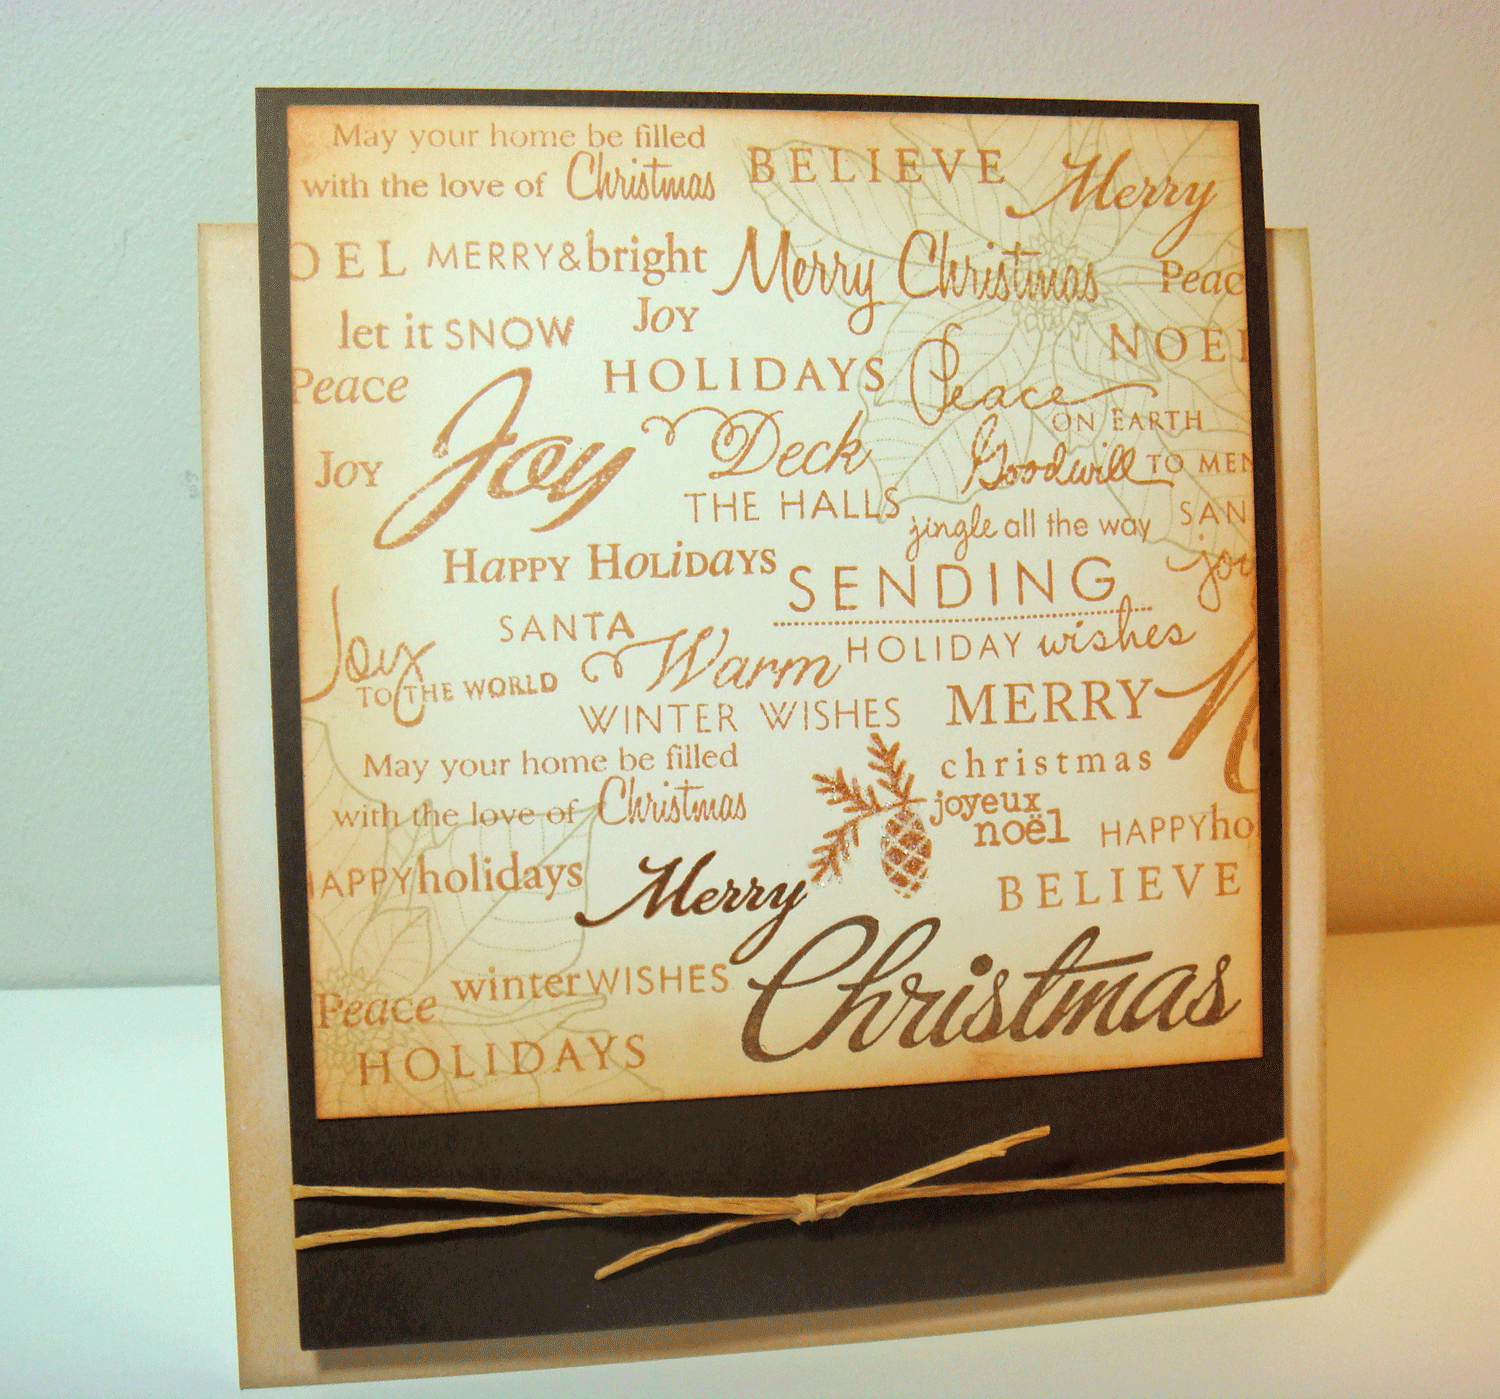 May your home be filled
with the love of Christmas
BELIEVE
Merry
OEL
MERRY&bright
Merry Christmas
Peac
let it SNOW
Joy
NOEL
Peace
HOLIDAYS
Peace
ON EARTH
Joy
Joy
Deck
THE HALLS
Goodwill TO MEN
SAN
jingle all the way
joy
Happy Holidays
SENDING
HOLIDAY wishes
SANTA
Joy
TO THE WORLD
Warm
WINTER WISHES
MERRY
christmas
May your home be filled
with the love of Christmas
joyeux
noël
HAPPYho
HAPPYholidays
Merry
Christmas
BELIEVE
Peace
winterWISHES
HOLIDAYS